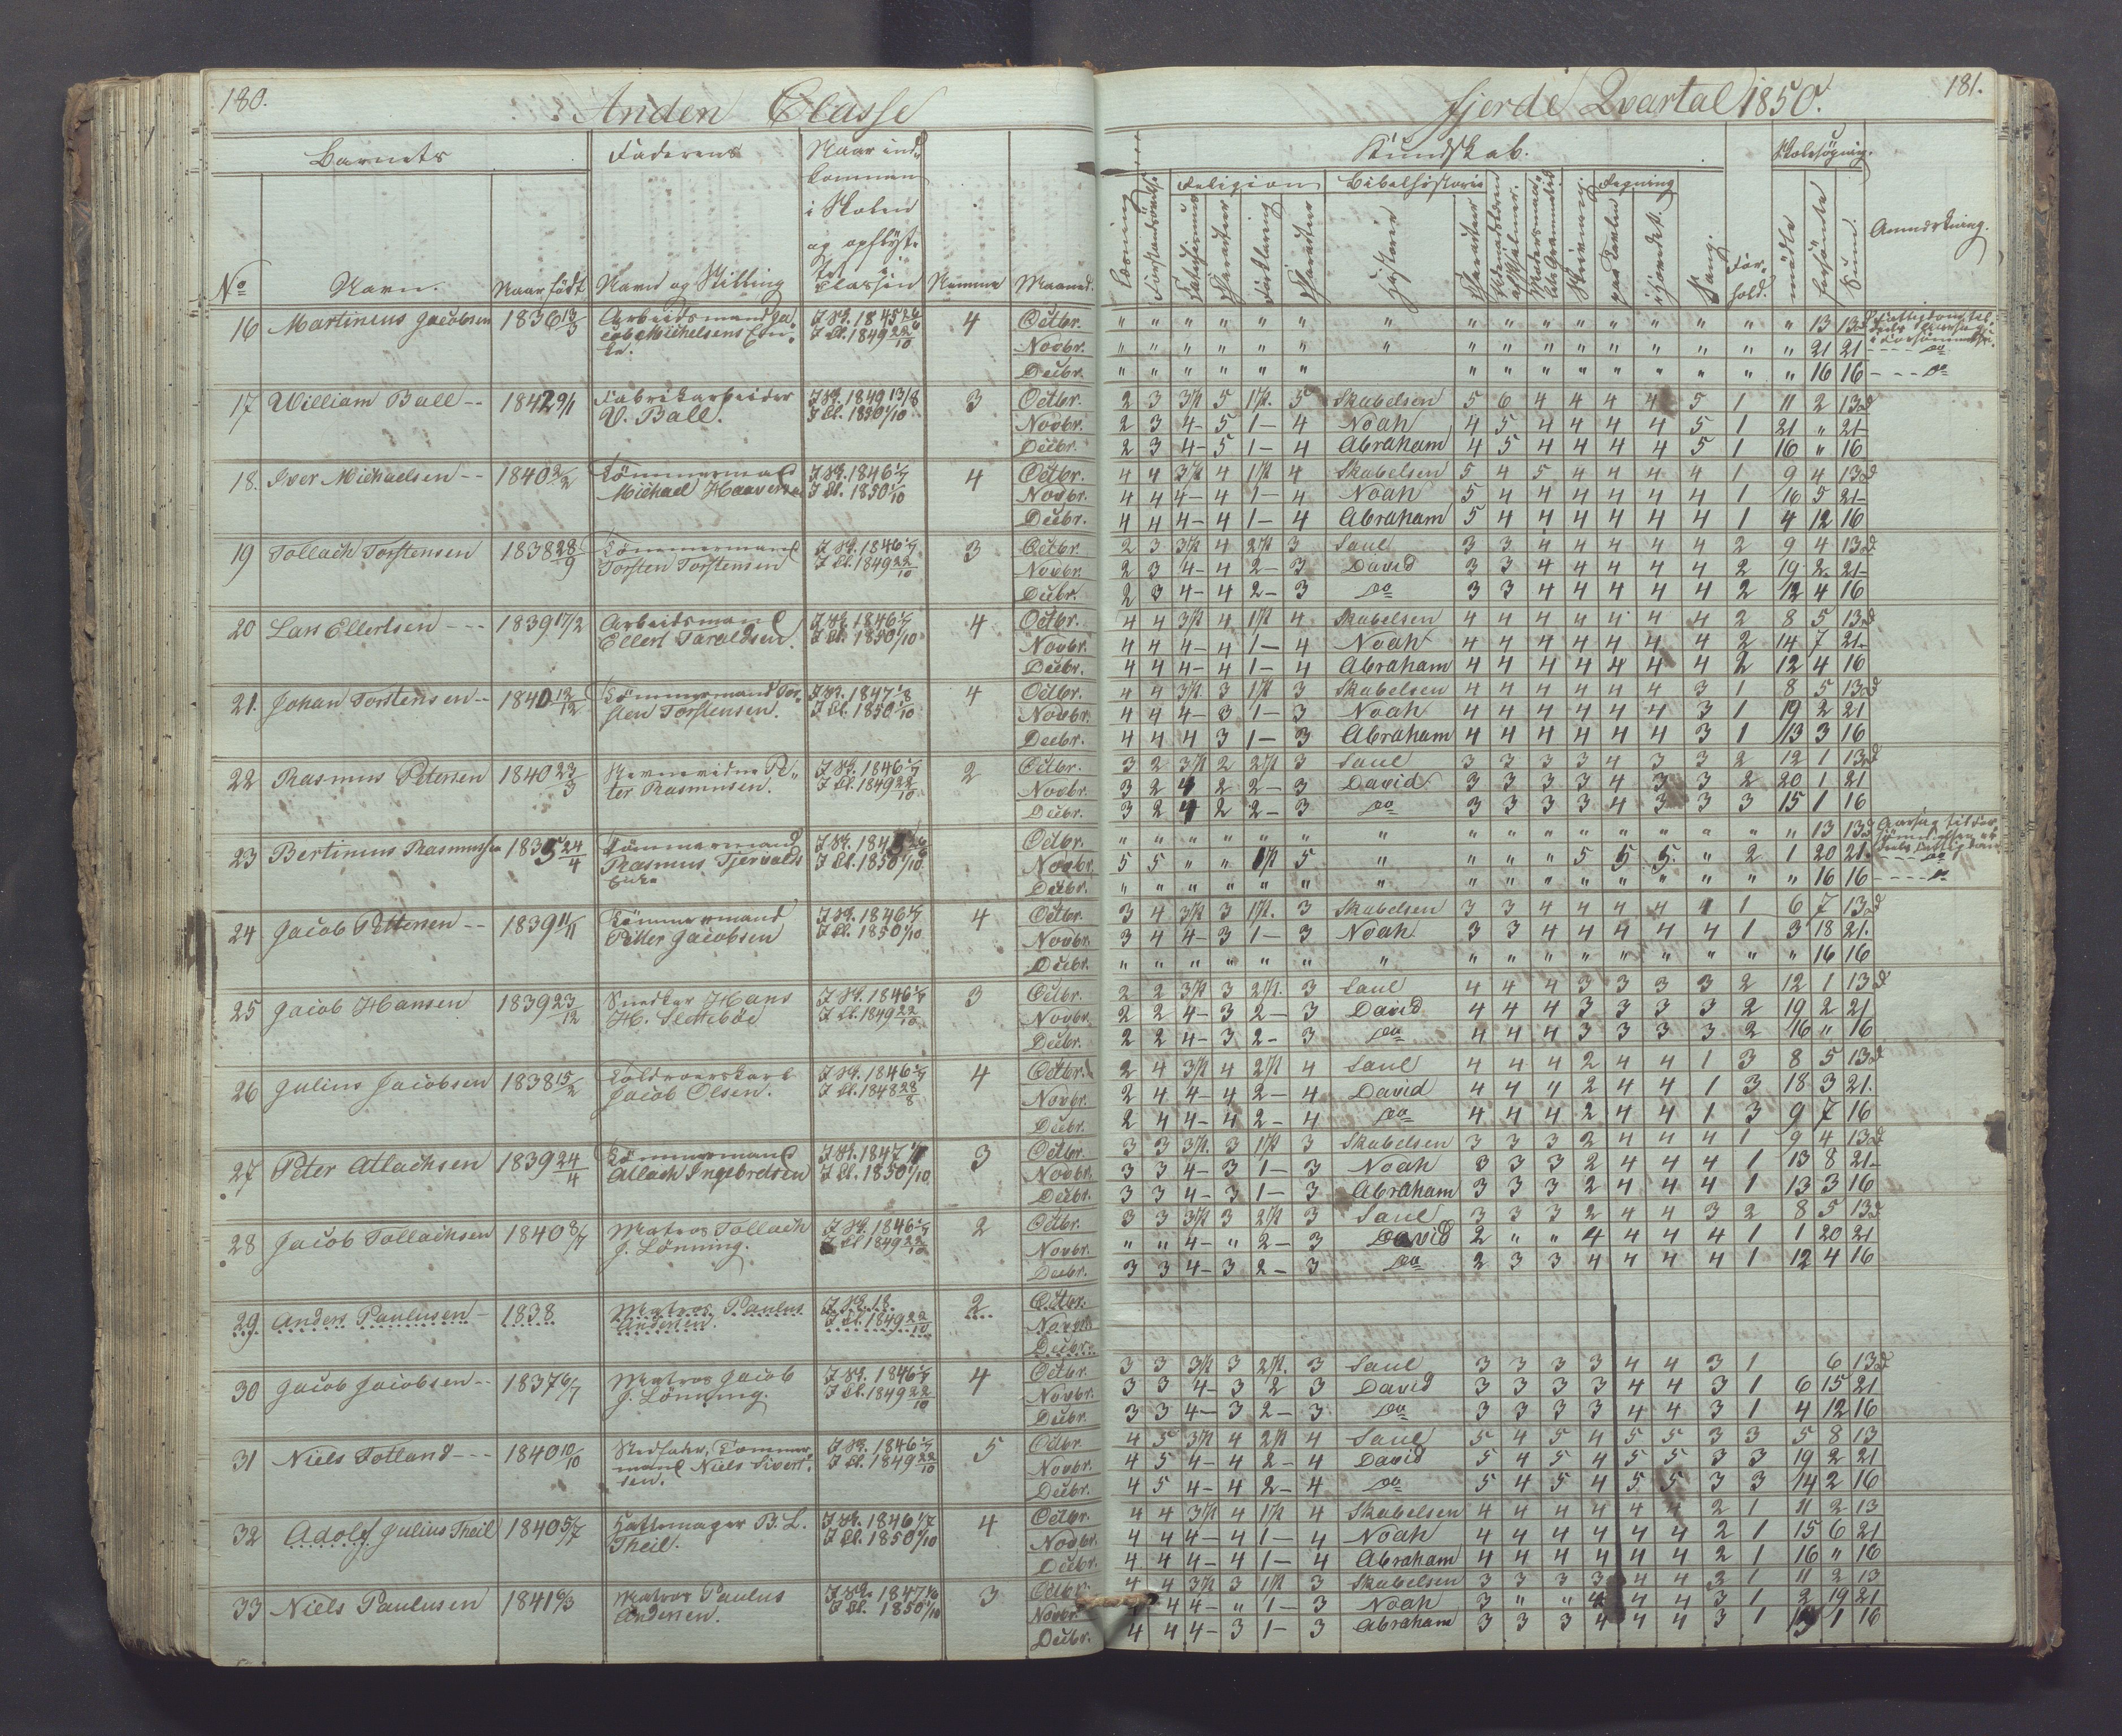 180.
Anden Classe
Barnets
Faderens
Naar ind-
kommen
i Skolen
og opflyt-
tet i
Classen
No
Navn.
Naar født
Navn og Stilling
Numer
Maaned.
16 Martinius Jacobsen 1836 13/3 Arbeidsmand Ja- I Sk. 1845 4 Octbr.
cob Michelsens En- I Cl. 1849 22/10 Novbr.
ke. Decbr.
17 William Ball -- 1842 9/1 Fabrikarbeider I Sk. 1849 13/8 3 Octbr.
V. Ball. I Cl. 1850 1/10 Novbr.
Decbr.
18. Iver Michaelsen -- 1840 2/2 Tömmermand I Sk. 1846 1/7 4 Octbr.
Michael Haaversen I Cl. 1850 1/10 Novbr.
Decbr.
19 Tollach Torstensen 1838 28/9 Tömmermand I Sk. 1846 1/7 3 Octbr.
Torsten Torstensen I Cl. 1849 22/10 Novbr.
Decbr.
20 Lars Ellertsen --- 1839 17/2 Arbeidsmand I Sk. 1846 1/7 4 Octbr.
Ellert Taraldsen. I Cl. 1850 1/10 Novbr.
Decbr.
21. Johan Torstensen -- 1840 12/12 Tömmermand Tor- I Sk. 1847 1/8 4 Octbr.
sten Torstensen. I Cl. 1850 1/10 Novbr.
Decbr.
22 Rasmus Petersen 1840 23/3 Pe- I Sk. 1846 1/7 2 Octbr.
ter Rasmussen. I Cl. 1849 22/10 Novbr.
Decbr.
23 Bertinius Rasmussen 1835 24/4 Tömmermand I Sk. 1845 Octbr.
Rasmus Tjervolds I Cl. 1850 1/10 Novbr.
Enke Decbr.
24 Jacob Pettersen -- 1839 11/11 Tömmermand I Sk. 1846 1/7 4 Octbr.
Petter Jacobsen I Cl. 1850 1/10 Novbr.
Decbr.
25 Jacob Hansen 1839 23/12 Snedker Hans I Sk. 1846 1/7 3 Octbr.
H. Sletteböe I Cl. 1849 22/10 Novbr.
Decbr.
26 Julius Jacobsen 1838 15/2 Toldroerskarl I Sk. 1846 1/7 4 Octbr.
Jacob Olsen. I Cl. 1848 28/8 Novbr.
Decbr.
27 Peter Atlachsen 1839 24/4 Tömmermand I Sk. 1847 3 Octbr.
Atlach Ingebretsen I Cl. 1850 1/10 Novbr.
Decbr.
28 Jacob Tollachsen 1840 8/7 Matros Tollach I Sk. 1846 1/7 2 Octbr.
J. Lönning. I Cl 1849 22/10 Novbr.
Decbr.
29 Anders Paulusen - 1838 Matros Paulus I Sk. 18 2 Octbr.
Andersen. I Cl. 1849 22/10 Novbr.
Decbr.
30 Jacob Jacobsen -- 1837 6/7 Matros Jacob I Sk. 1846 1/7 4 Octbr.
J. Lönning. I Cl. 1849 22/10 Novbr.
Decbr.
31 Niels Totland --- 1840 10/10 Stedfader, Tömmer- I Sk. 1846 1/7 5 Octbr.
mand Niels Sivert- I Cl. 1849 22/10 Novbr.
sen. Decbr.
32 Adolf Julius Theil 1840 5/7 Hattemager B. L. I Sk. 1846 1/7 4 Octbr.
Theil. I Cl. 1850 1/10 Novbr.
Decbr.
33 Niels Paulusen 1841 6/3 Matros Paulus I Sk. 1847 3 Octbr.
Andersen. I Cl. 1850 1/10 Novbr.
Decbr.
181.
fjerde Qvartal 1850.
Kundskab.
Skolesøgning.
Religion
Bibelhistorie
Regning
Læsning
Forstandsøvelse
Catechismus
Charakter
Forklaring
Charakter
Historie
Charakter
Skrivning.
paa Tavlen
i Hovedet.
Sang.
For-
hold.
mødte
forsömte
Sum.
Anmærkning.
" " " " " " " " " " " " " " " " 13 13d
" " " " " " " " " " " " " " " " 21 21 - - - do
" " " " " " " " " " " " " " " 16 16 - - - do
2 3 3P 5 1P. 5 Skabelsen 5 6 4 4 4 4 5 1 11 2 13d
2 3 4- 5 1- 4 Noah 4 5 4 4 4 4 5 1 21 " 21-
2 3 4- 5 1- 4 Abraham 4 5 4 4 4 4 5 1 16 " 16
4 4 3P 4 1P 4 Skabelsen 5 4 5 4 4 4 4 1 9 4 13d
4 4 4- 4 1- 4 Noah 5 4 4 4 4 4 4 1 16 5 21-
4 4 4- 4 1- 4 Abraham 5 4 4 4 4 4 4 1 4 12 16
2 3 3P 4 2P 3 Saul 3 3 4 4 4 4 4 2 9 4 13d
2 3 4- 4 2- 3 David 3 3 4 4 4 4 4 2 19 2 21-
2 3 4- 4 2- 3 do 3 3 4 4 4 4 4 2 12 4 16
4 4 3P 4 1P 4 Skabelsen 4 4 4 4 4 4 4 2 8 5 13d
4 4 4- 4 1- 4 Noah 4 4 4 4 4 4 4 2 14 7 21-
4 4 4- 4 1- 4 Abraham 4 4 4 4 4 4 4 2 12 4 16
4 4 3P. 3 1P 3 Skabelsen 4 4 4 4 4 4 3 1 8 5 13d
4 4 4- 3 1- 3 Noah 4 4 4 4 4 4 3 1 19 2 21
4 4 4 3 1- 3 Abraham 4 4 4 4 4 4 3 1 13 3 16
3 2 3P 2 2P 3 Saul 3 3 3 3 4 3 3 2 12 1 13d
3 2 4 2 2- 3 David 3 3 3 3 4 3 3 2 20 1 21
3 2 4 2 2- 3 do 3 3 3 3 4 3 3 3 15 1 16
" " " " " " " " " " " " " " " " 13 13d
5 5 " " 1P 5 " " " " 5 5 5. " 2 1 20 21 - - - do
" " " " " " " " " " " " " " " " 16 16 - - - do
3 4 3P 3 1P. 3 Skabelsen 3 3 4 4 4 4 4 1 6 7 13d
3 4 4- 3 1- 3 Noah 3 3 4 4 4 4 4 1 3 18 21.
" " " " " " " " " " " " " " " " 16 16
2 2 3P 3 2P. 3 Saul 4 4 4 3 3 3 3 2 12 1 13d
2 2 4- 3 2- 3 David 4 4 4 3 3 3 3 2 19 2 21
2 2 4- 3 2- 3 do 4 4 4 3 3 3 3 2 16 " 16
2 4 3P 4 2P 4 Saul 4 4 4 2 4 4 1 3 8 5 13d
2 4 4- 4 2- 4 David 4 4 4 2 4 4 1 3 18 3 21.
2 4 4- 4 2- 4 do 4 4 4 2 4 4 1 3 9 7 16
3 3 3P. 3 1P 3 Skabelsen 3 3 3 2 4 4 4 1 9 4 13d
3 3 4- 3 1- 3 Noah 3 3 3 2 4 4 4 1 13 8 21-
3 3 4- 3 1- 3 Abraham 3 3 3 2 4 4 4 1 13 3 16
3 3 3P 3 2P 3 Saul 3 3 3 2 4 4 3 2 8 5 13d
" " 4- " 2- 3 David 2 " " 4 4 4 4 1 1 20 21
3 3 4- 3 2- 3 do 2 3 3 4 4 4 4 1 12 4 16
3 3 3P 3 2P. 3 Saul 3 3 3 3 4 4 3 1 6 13d
3 3 4- 3 2 3 David 3 3 3 3 4 4 3 1 6 15 21
3 3 4- 3 2- 3 do 3 3 3 3 4 4 3 1 4 12 16
4 5 3P 4 2P 4 Saul 5 4 5 4 5 5 3 3 5 8 13
4 5 4- 4 2- 4 David 5 4 5 4 5 5 3 3 19 2 21
4 5 4- 4 2- 4 do 5 4 5 4 5 5 3 3 14 2 16
4 4 3P 4 1P 4 Skabelsen 4 4 4 4 4 4 2 1 11 2 13
4 4 4- 4 1- 4 Noah 4 4 4 4 4 4 2 1 15 6 21
4 4 4- 4 1- 4 Abraham 4 4 4 4 4 4 2 1 16 " 16
4 4 3P 3 1P 3 Skabelsen 3 3 3 3 4 4 2 1 11 2 13
4 4- " 1- 3 Noah 3 " " 4 4 4 3 1 2 19 21
4 4 4- 3 1- 3 Abraham 3 3 3 4 4 4 3 1 15 1 16